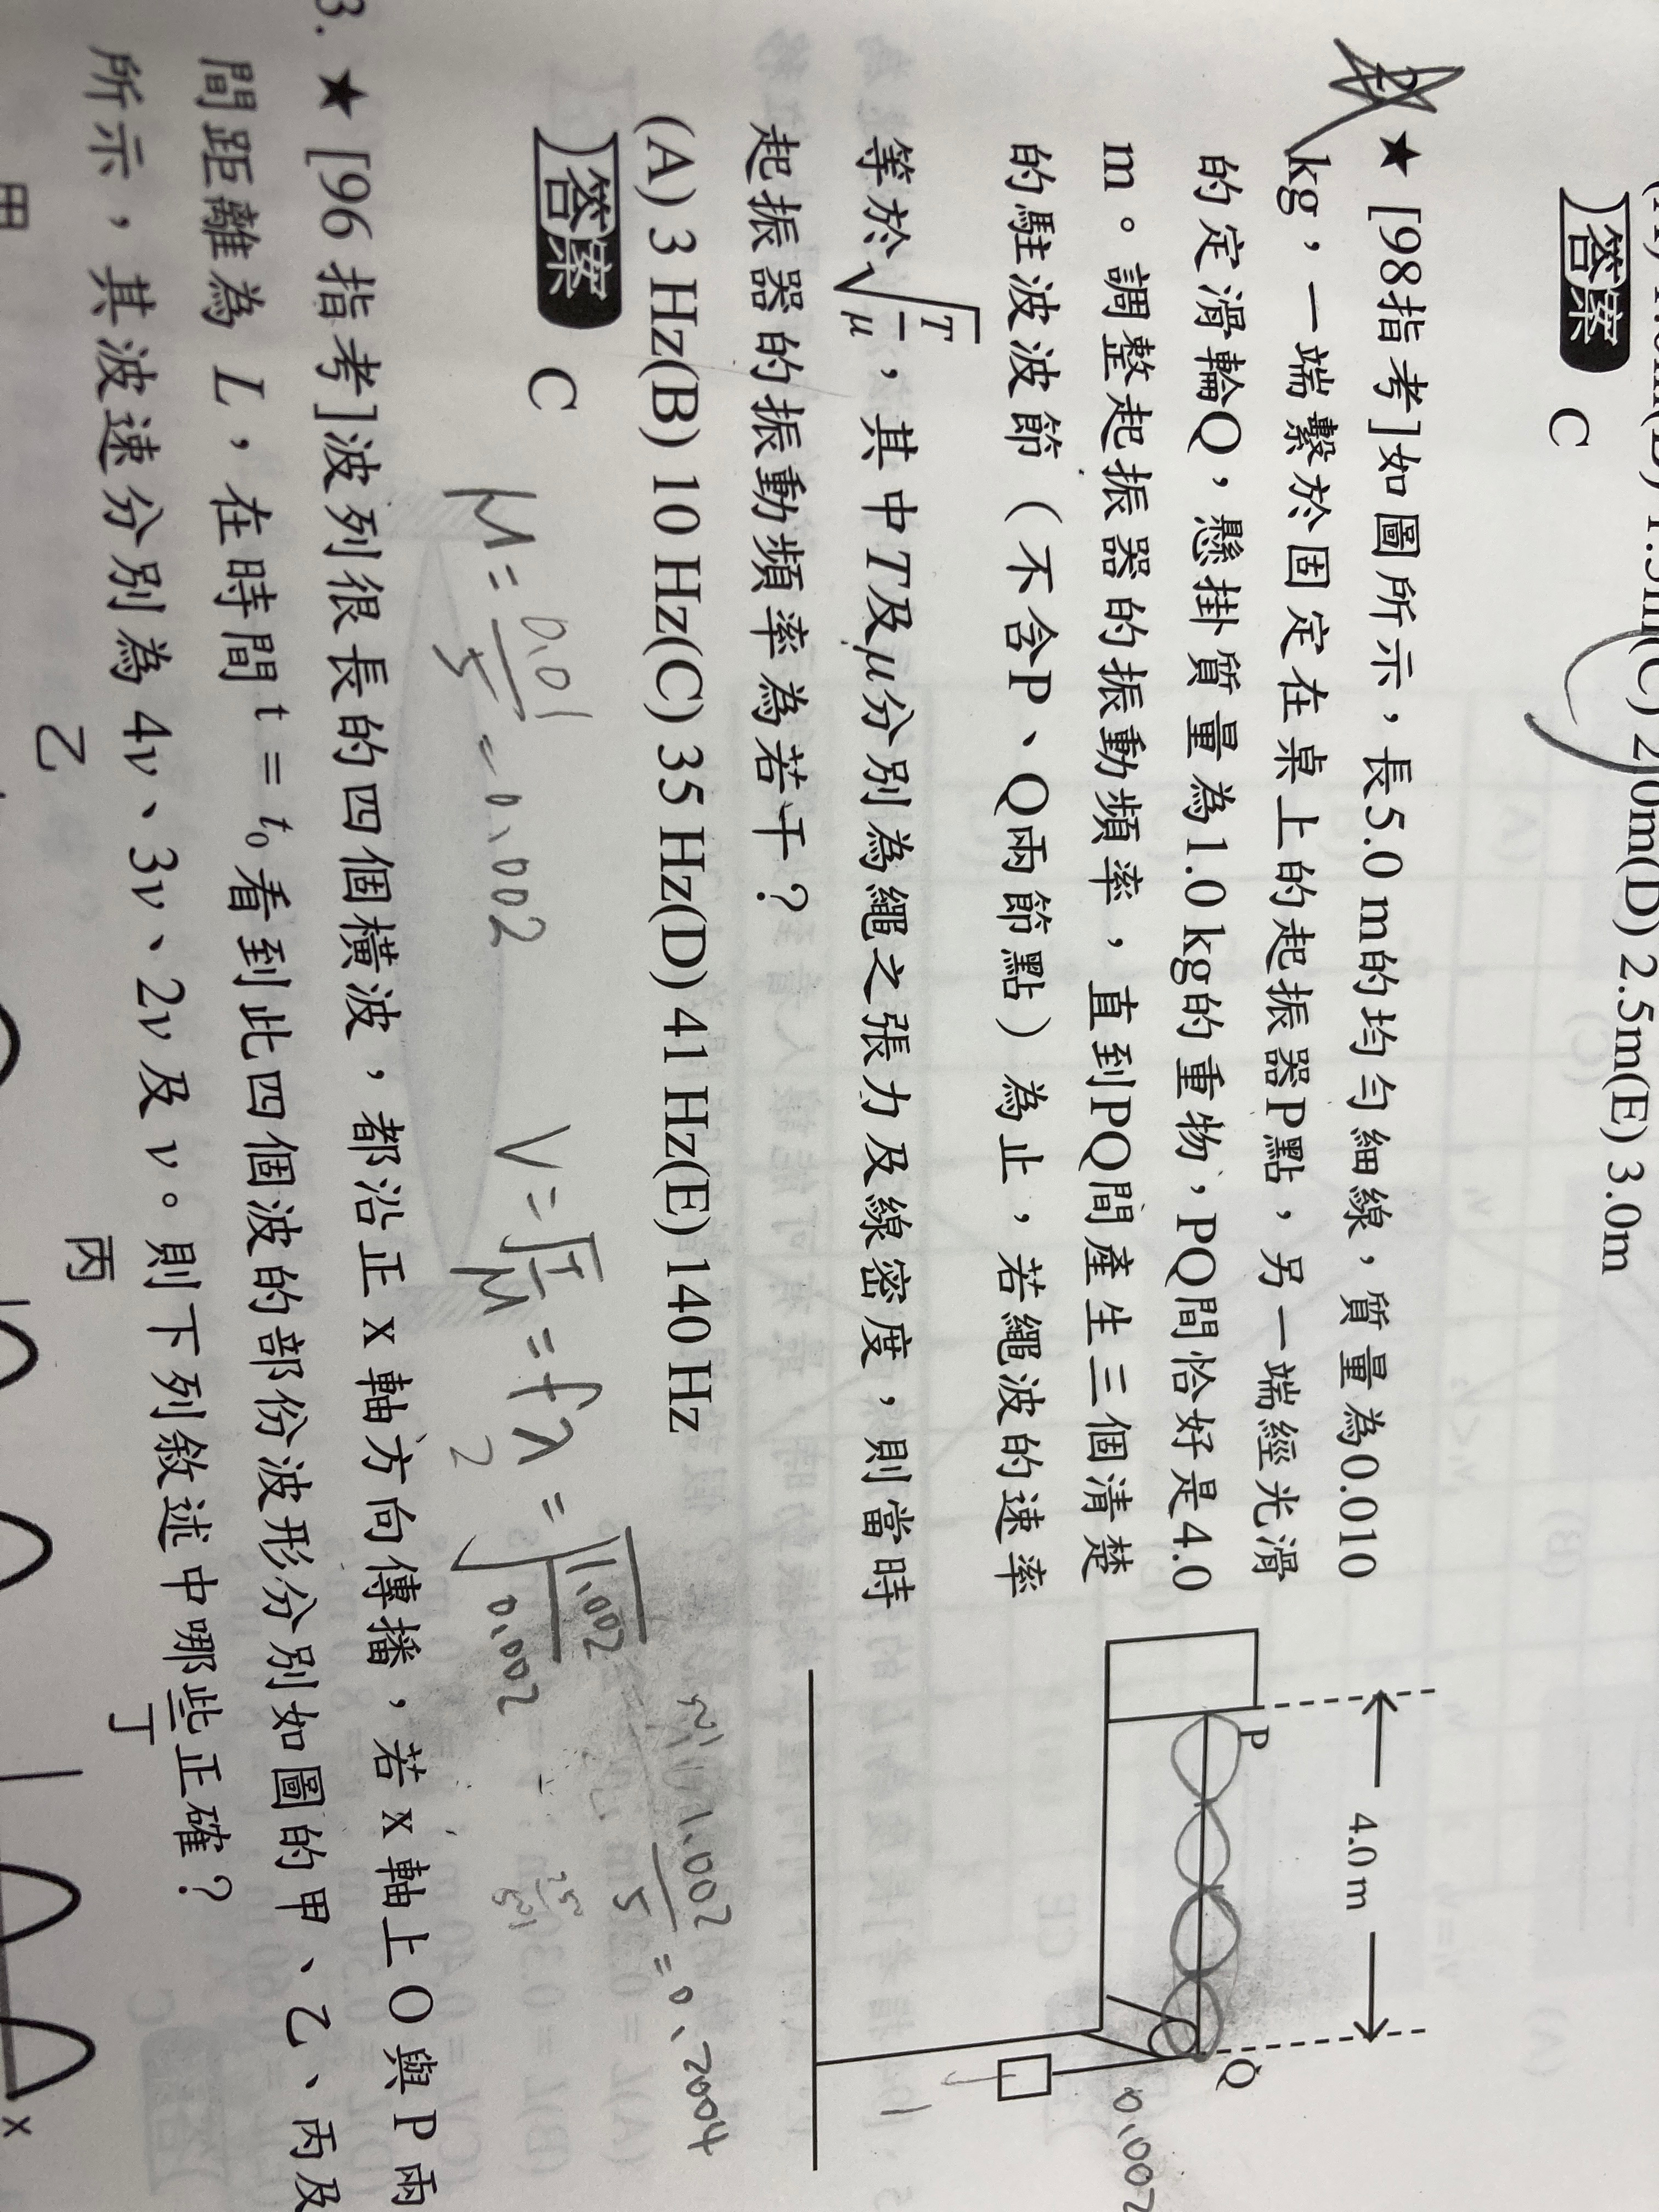 2.5m(E) 3.0m
答案 C
★ [98指考]如圖所示，長5.0 m的均勻細線，質量為0.010
kg，一端繫於固定在桌上的起振器P點，另一端經光滑
的定滑輪Q，懸掛質量為1.0 kg的重物，PQ間恰好是4.0
m。調整起振器的振動頻率，直到PQ間產生三個清楚
的駐波波節（不含P、Q兩節點）為止，若繩波的速率
等於√T/μ，其中T及μ分別為繩之張力及線密度，則當時
起振器的振動頻率為若干？
(A) 3 Hz(B) 10 Hz(C) 35 Hz(D) 41 Hz(E) 140 Hz
答案 C
4.0 m
P
Q
0.002
1
1.002/5 = 0.2004
μ = 0.01/5 = 0.002
V = √T/μ = fλ = √1.002/0.002
2
3. ★ [96 指考]波列很長的四個橫波，都沿正 x 軸方向傳播，若 x 軸上 O 與 P 兩
間距離為 L，在時間 t = t₀看到此四個波的部份波形分別如圖的甲、乙、丙及
所示，其波速分別為 4v、3v、2v 及 v。則下列敘述中哪些正確？
甲
乙
丙
丁
x